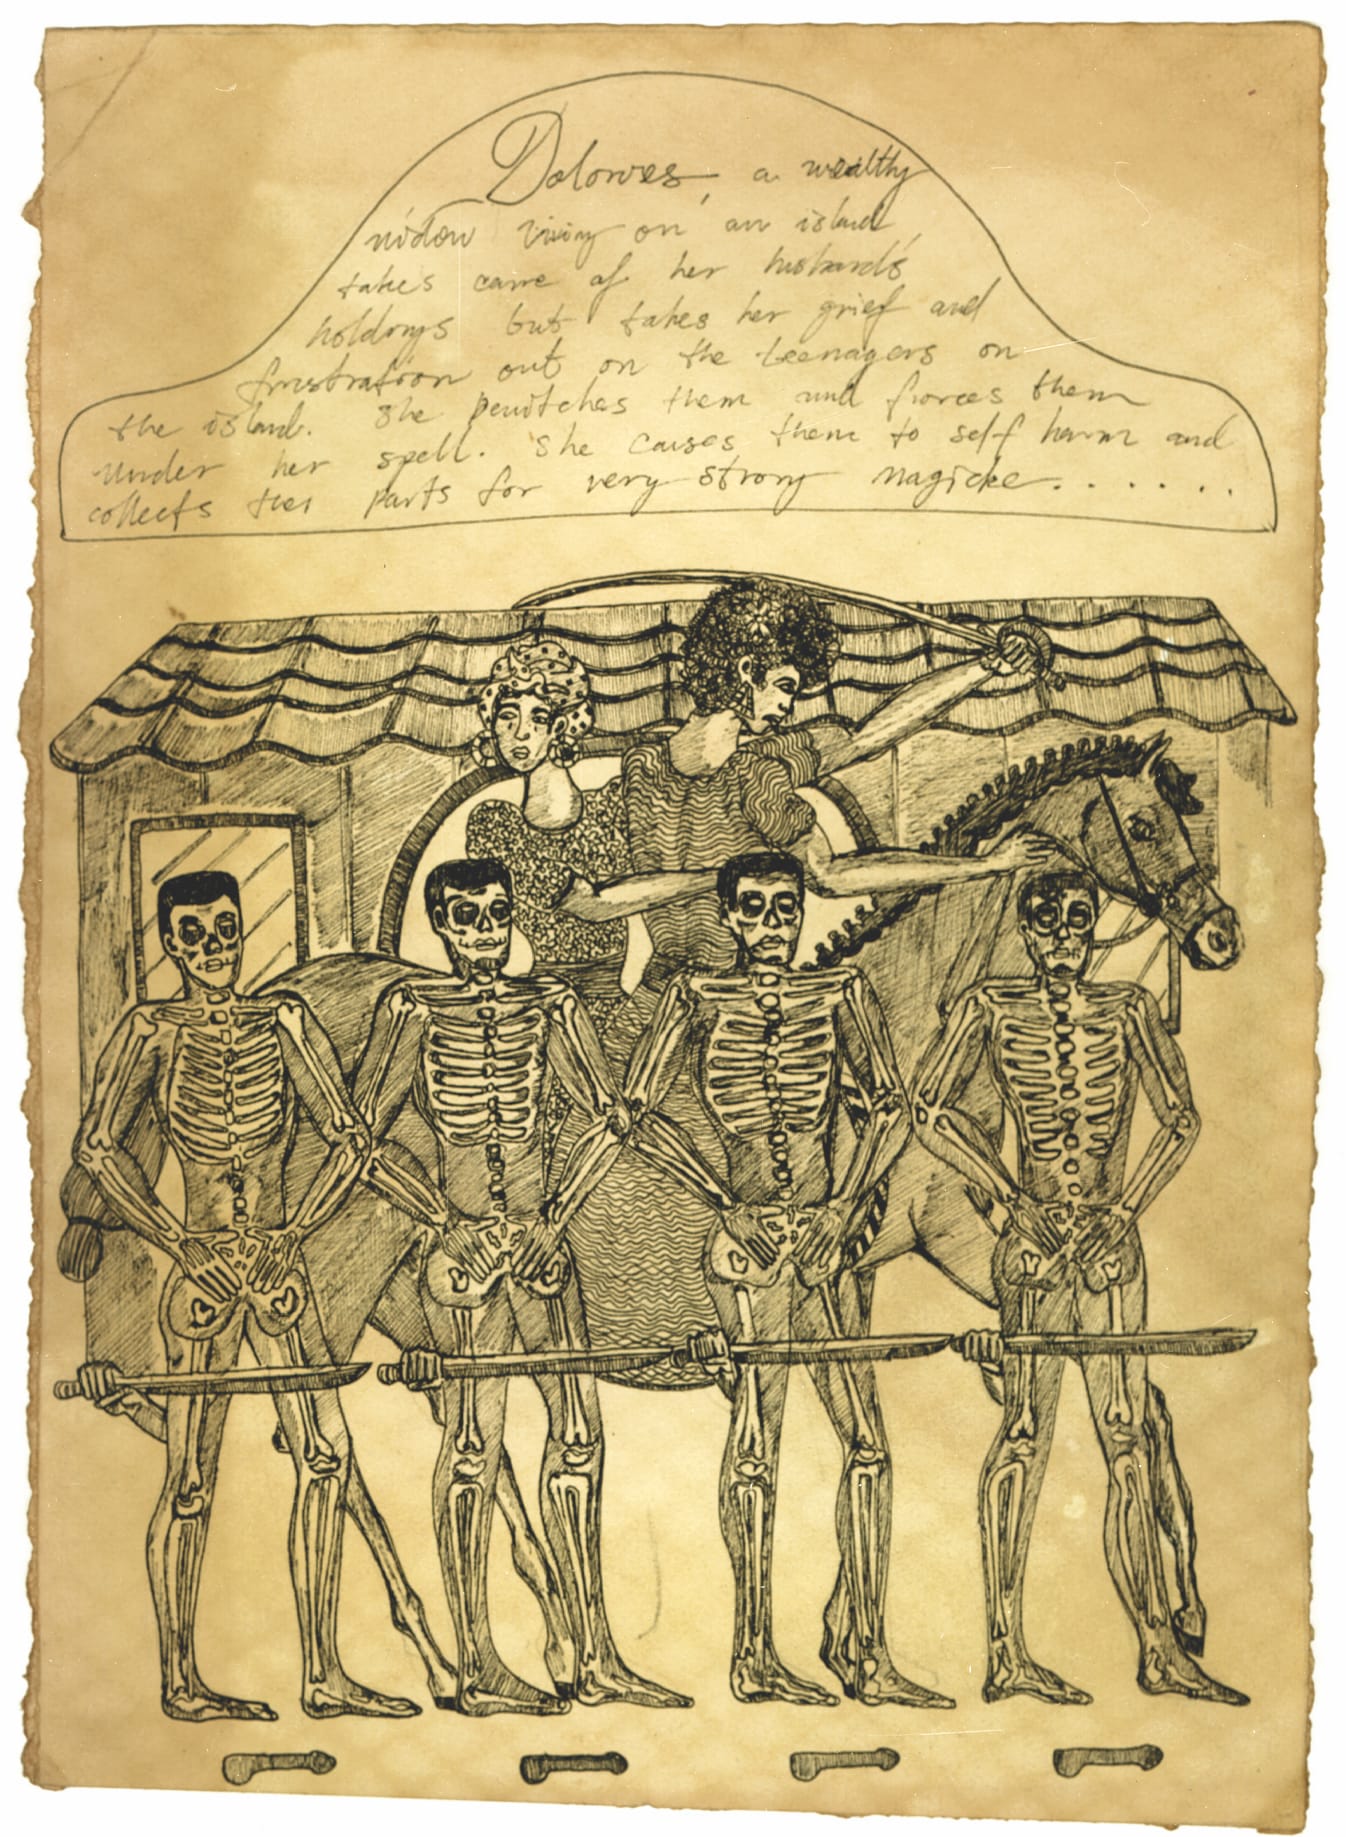 Dolores, a wealthy
widow living on an island
takes care of her husband's
holdings but takes her grief and
frustration out on the teenagers on
the island. She bewitches them and forces them
under her spell. She causes them to self harm and
collects parts for very strong magicke.......